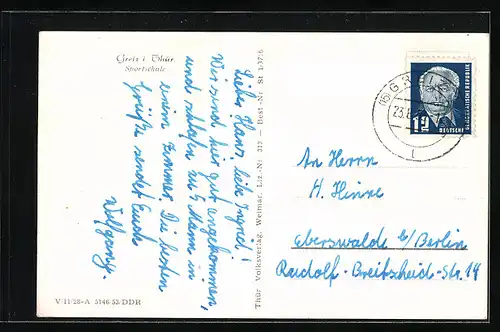 Greiz i. Thür.
Sportschule
Liebe Hanz, liebe Ingrid!
Wir sind hier gut angekommen,
und schlafen zu 5 Mann in
einem Zimmer. Die besten
Grüße sendet Euch
Wolfgang.
V 11/28-A 5146 53/DDR
Thür Volksverlag, Weimar, Liz.-Nr. 313 — Best.-Nr. St 1/3716
12
DEUTSCHE DEMOKRATISCHE REPUBLIK
An Herrn
H. Hinze
Eberswalde b/Berlin
Rudolf-Breitscheid-Str. 14